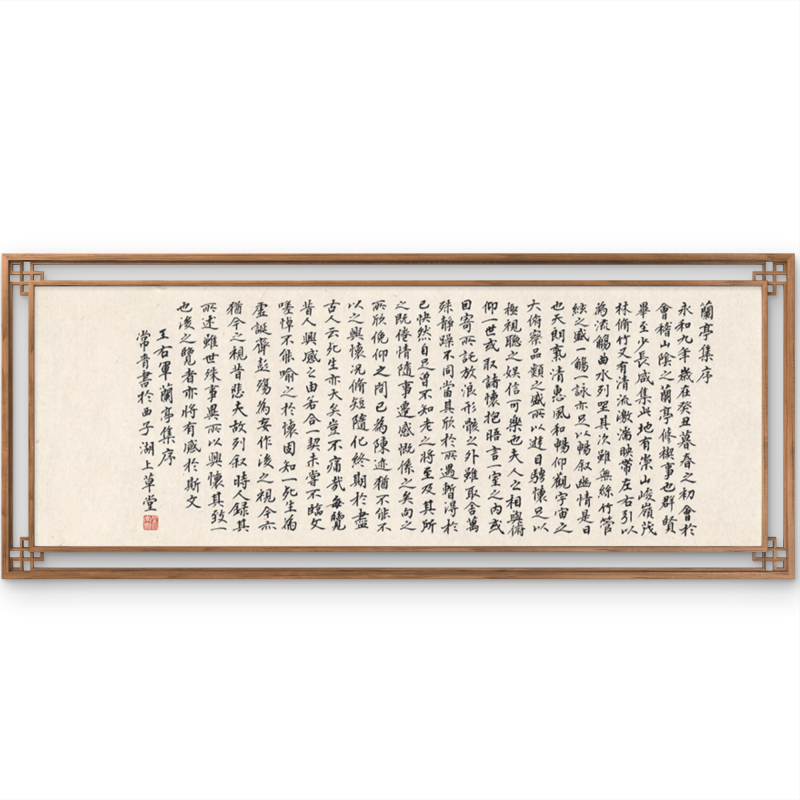 蘭亭集序
永和九年歲在癸丑暮春之初會於
會稽山陰之蘭亭修禊事也群賢
畢至少長咸集此地有崇山峻嶺茂
林脩竹又有清流激湍映帶左右引以
為流觴曲水列坐其次雖無絲竹管
絃之盛一觴一詠亦足以暢叙幽情是日
也天朗氣清惠風和暢仰觀宇宙之
大俯察品類之盛所以遊目騁懷足以
極視聽之娛信可樂也夫人之相與俯
仰一世或取諸懷抱晤言一室之內或
因寄所託放浪形骸之外雖取舍萬
殊靜躁不同當其欣於所遇暫得於
己快然自足曾不知老之將至及其所
之既倦情隨事遷感慨係之矣向之
所欣俛仰之間已為陳迹猶不能不
以之興懷况脩短隨化終期於盡
古人云死生亦大矣豈不痛哉每覽
昔人興感之由若合一契未嘗不臨文
嗟悼不能喻之於懷固知一死生為
虛誕齊彭殤為妄作後之視今亦
猶今之視昔悲夫故列叙時人錄其
所述雖世殊事異所以興懷其致一
也後之覽者亦將有感於斯文
王右軍蘭亭集序
常青書於西子湖上草堂